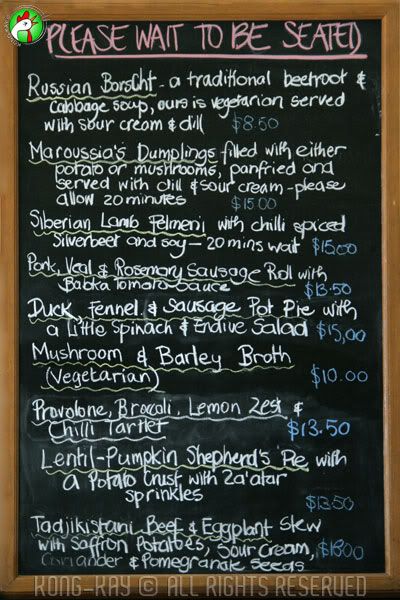 PLEASE WAIT TO BE SEATED
Russian Borscht - a traditional beetroot &
Cabbage soup, ours is vegetarian served
with sour cream & dill $8.50
Maroussia's Dumplings filled with either
potato or mushrooms, panfried and
served with dill & sour cream - please
allow 20 minutes $15.00
Siberian Lamb Pelmeni with chilli spiced
Silverbeet and soy - 20 mins wait $15.00
Pork, Veal & Rosemary Sausage Roll with
Babka Tomato Sauce $13.50
Duck, Fennel & Sausage Pot Pie with
a Little Spinach & Endive Salad $15,00
Mushroom & Barley Broth
(Vegetarian) $10.00
Provolone, Brocoli, Lemon Zest &
Chilli Tartlet $13.50
Lentil-Pumpkin Shepherd's Pie with
a Potato Crust with Za'atar
sprinkles
$13.50
Tadjikistani Beef & Eggplant Stew
with Saffron Potatoes, Sour Cream, $18.00
Coriander & Pomegranate Seeds
KONG-KAY © ALL RIGHTS RESERVED